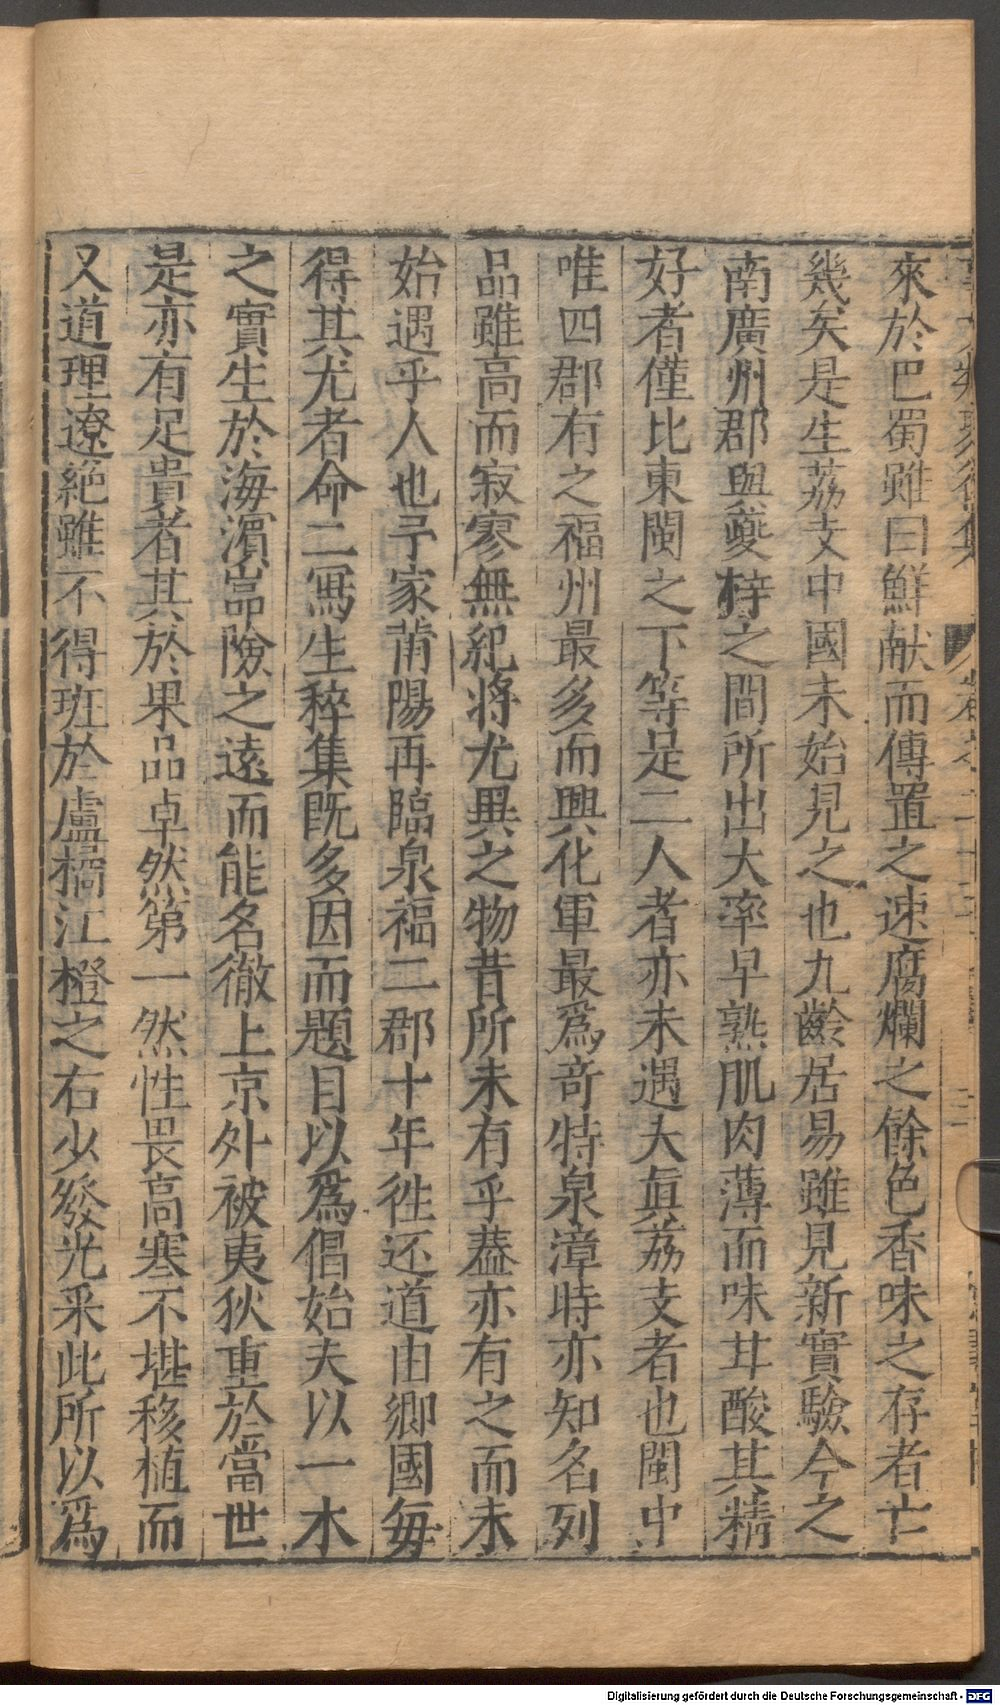 來於巴蜀雖曰鮮献而傳置之速腐爛之餘色香味之存者亡
幾矣是生荔支中國未始見之也九齡居易雖見新實驗今之
南廣州郡與夔梓之間所出大率早熟肌肉薄而味甘酸其精
好者僅比東閩之下等是二人者亦未遇夫眞荔支者也閩中
唯四郡有之福州最多而興化軍最爲竒特泉漳時亦知名列
品雖高而寂寥無紀將尤異之物昔所未有乎葢亦有之而未
始遇乎人也予家莆陽再臨泉福二郡十年徃还道由郷國每
得其尤者命工寫生稡集旣多因而題目以爲倡始夫以一木
之實生於海濵嵓險之遠而能名徹上京外被夷狄重於當世
是亦有足貴者其於果品卓然第一然性畏高寒不堪移植而
又道理遼絶雖不得班於盧橘江橙之右少發光采此所以爲
Digitalisierung gefördert durch die Deutsche Forschungsgemeinschaft - DFG